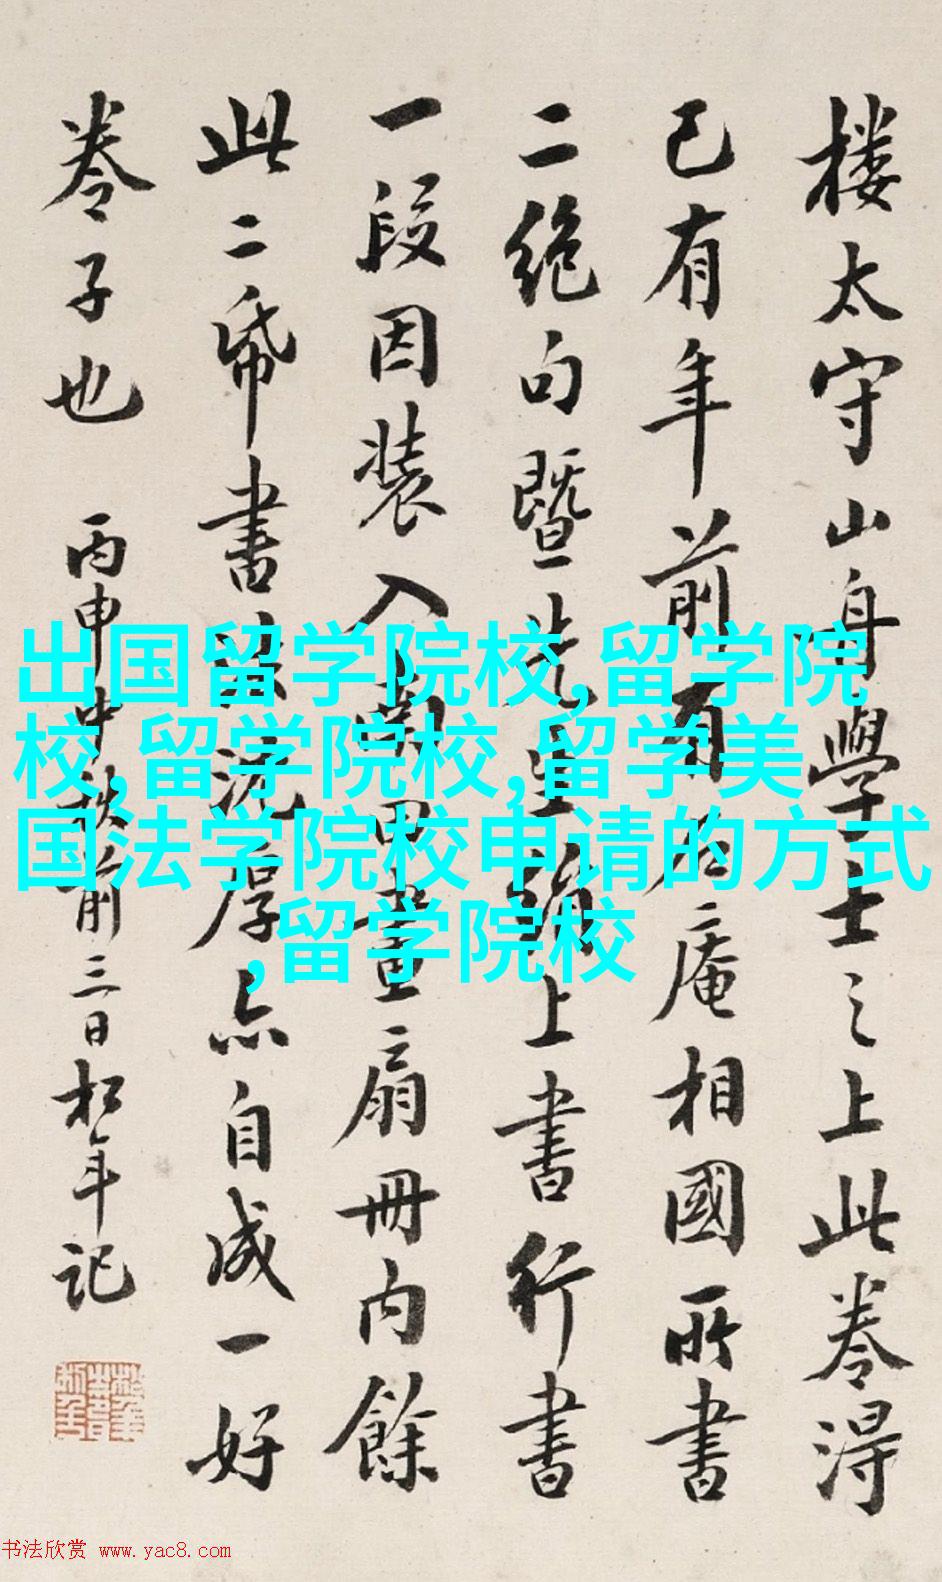 楼太守山舟學士之上此卷得
已有年前有

庵相國所書
二絶句暨先生

上書行書
一段因装入南田畫扇冊内餘
此二帋書法沉厚亦自成一好
卷子也
丙申中秋前三日松年記
出国留学院校,留学院
校,留学院校,留学美
国法学院校申请的方式
,留学院校
书法欣赏 www.yac8.com